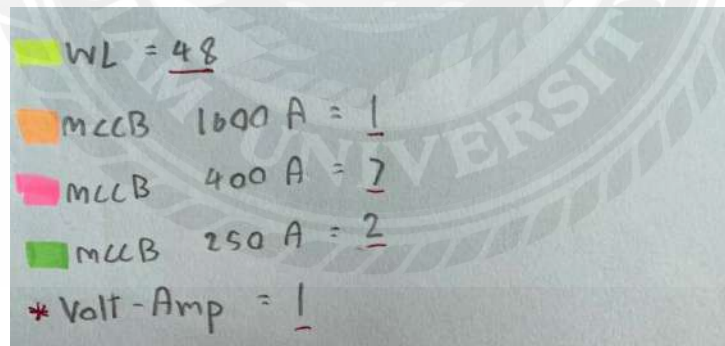 WL = 48
MCCB 1600 A = 1
MCCB 400 A = 7
MCCB 250 A = 2
* Volt-Amp = 1
UNIVERSITY